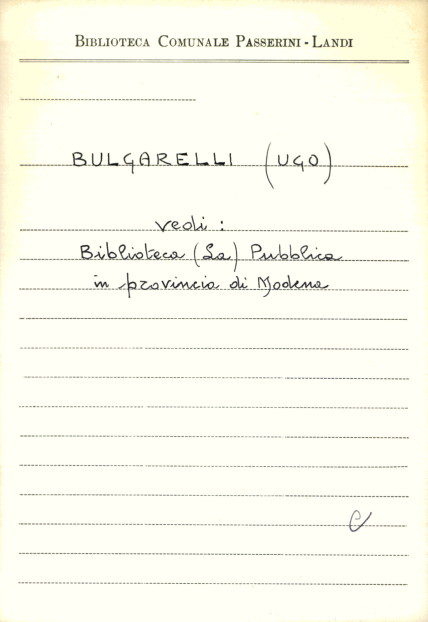 BIBLIOTECA COMUNALE PASSERINI - LANDI
BULGARELLI (UGO)
vedi :
Biblioteca (La) Pubblica
in provincia di Modena
C